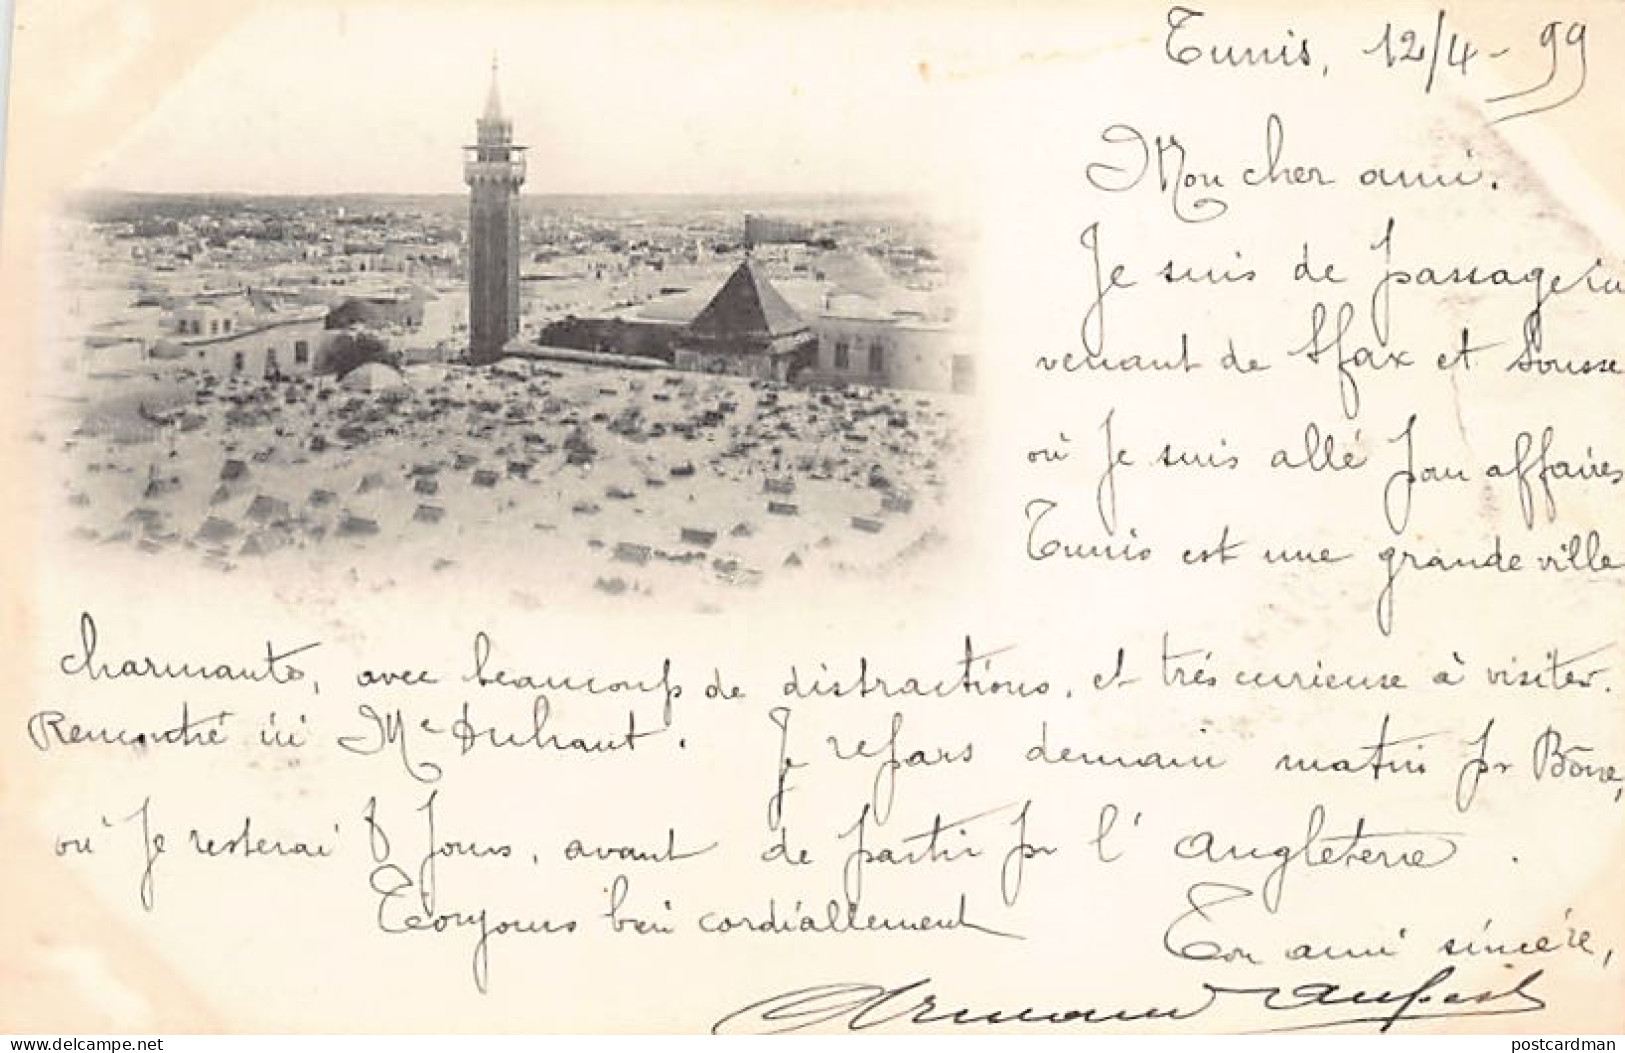 Tunis, 12/4-99
Mon cher ami.
Je suis de passage ici
venant de Sfax et Sousse
où je suis allé pour affaires
Tunis est une grande ville
charmante, avec beaucoup de distractions, et très curieuse à visiter.
Rencontré ici Mr Duhaut. Je repars demain matin pr Bône,
où je resterai 8 jours, avant de partir pr l'Angleterre.
Toujours bien cordiallement
Ton ami sincère,
Armand
delcampe.net
postcardman